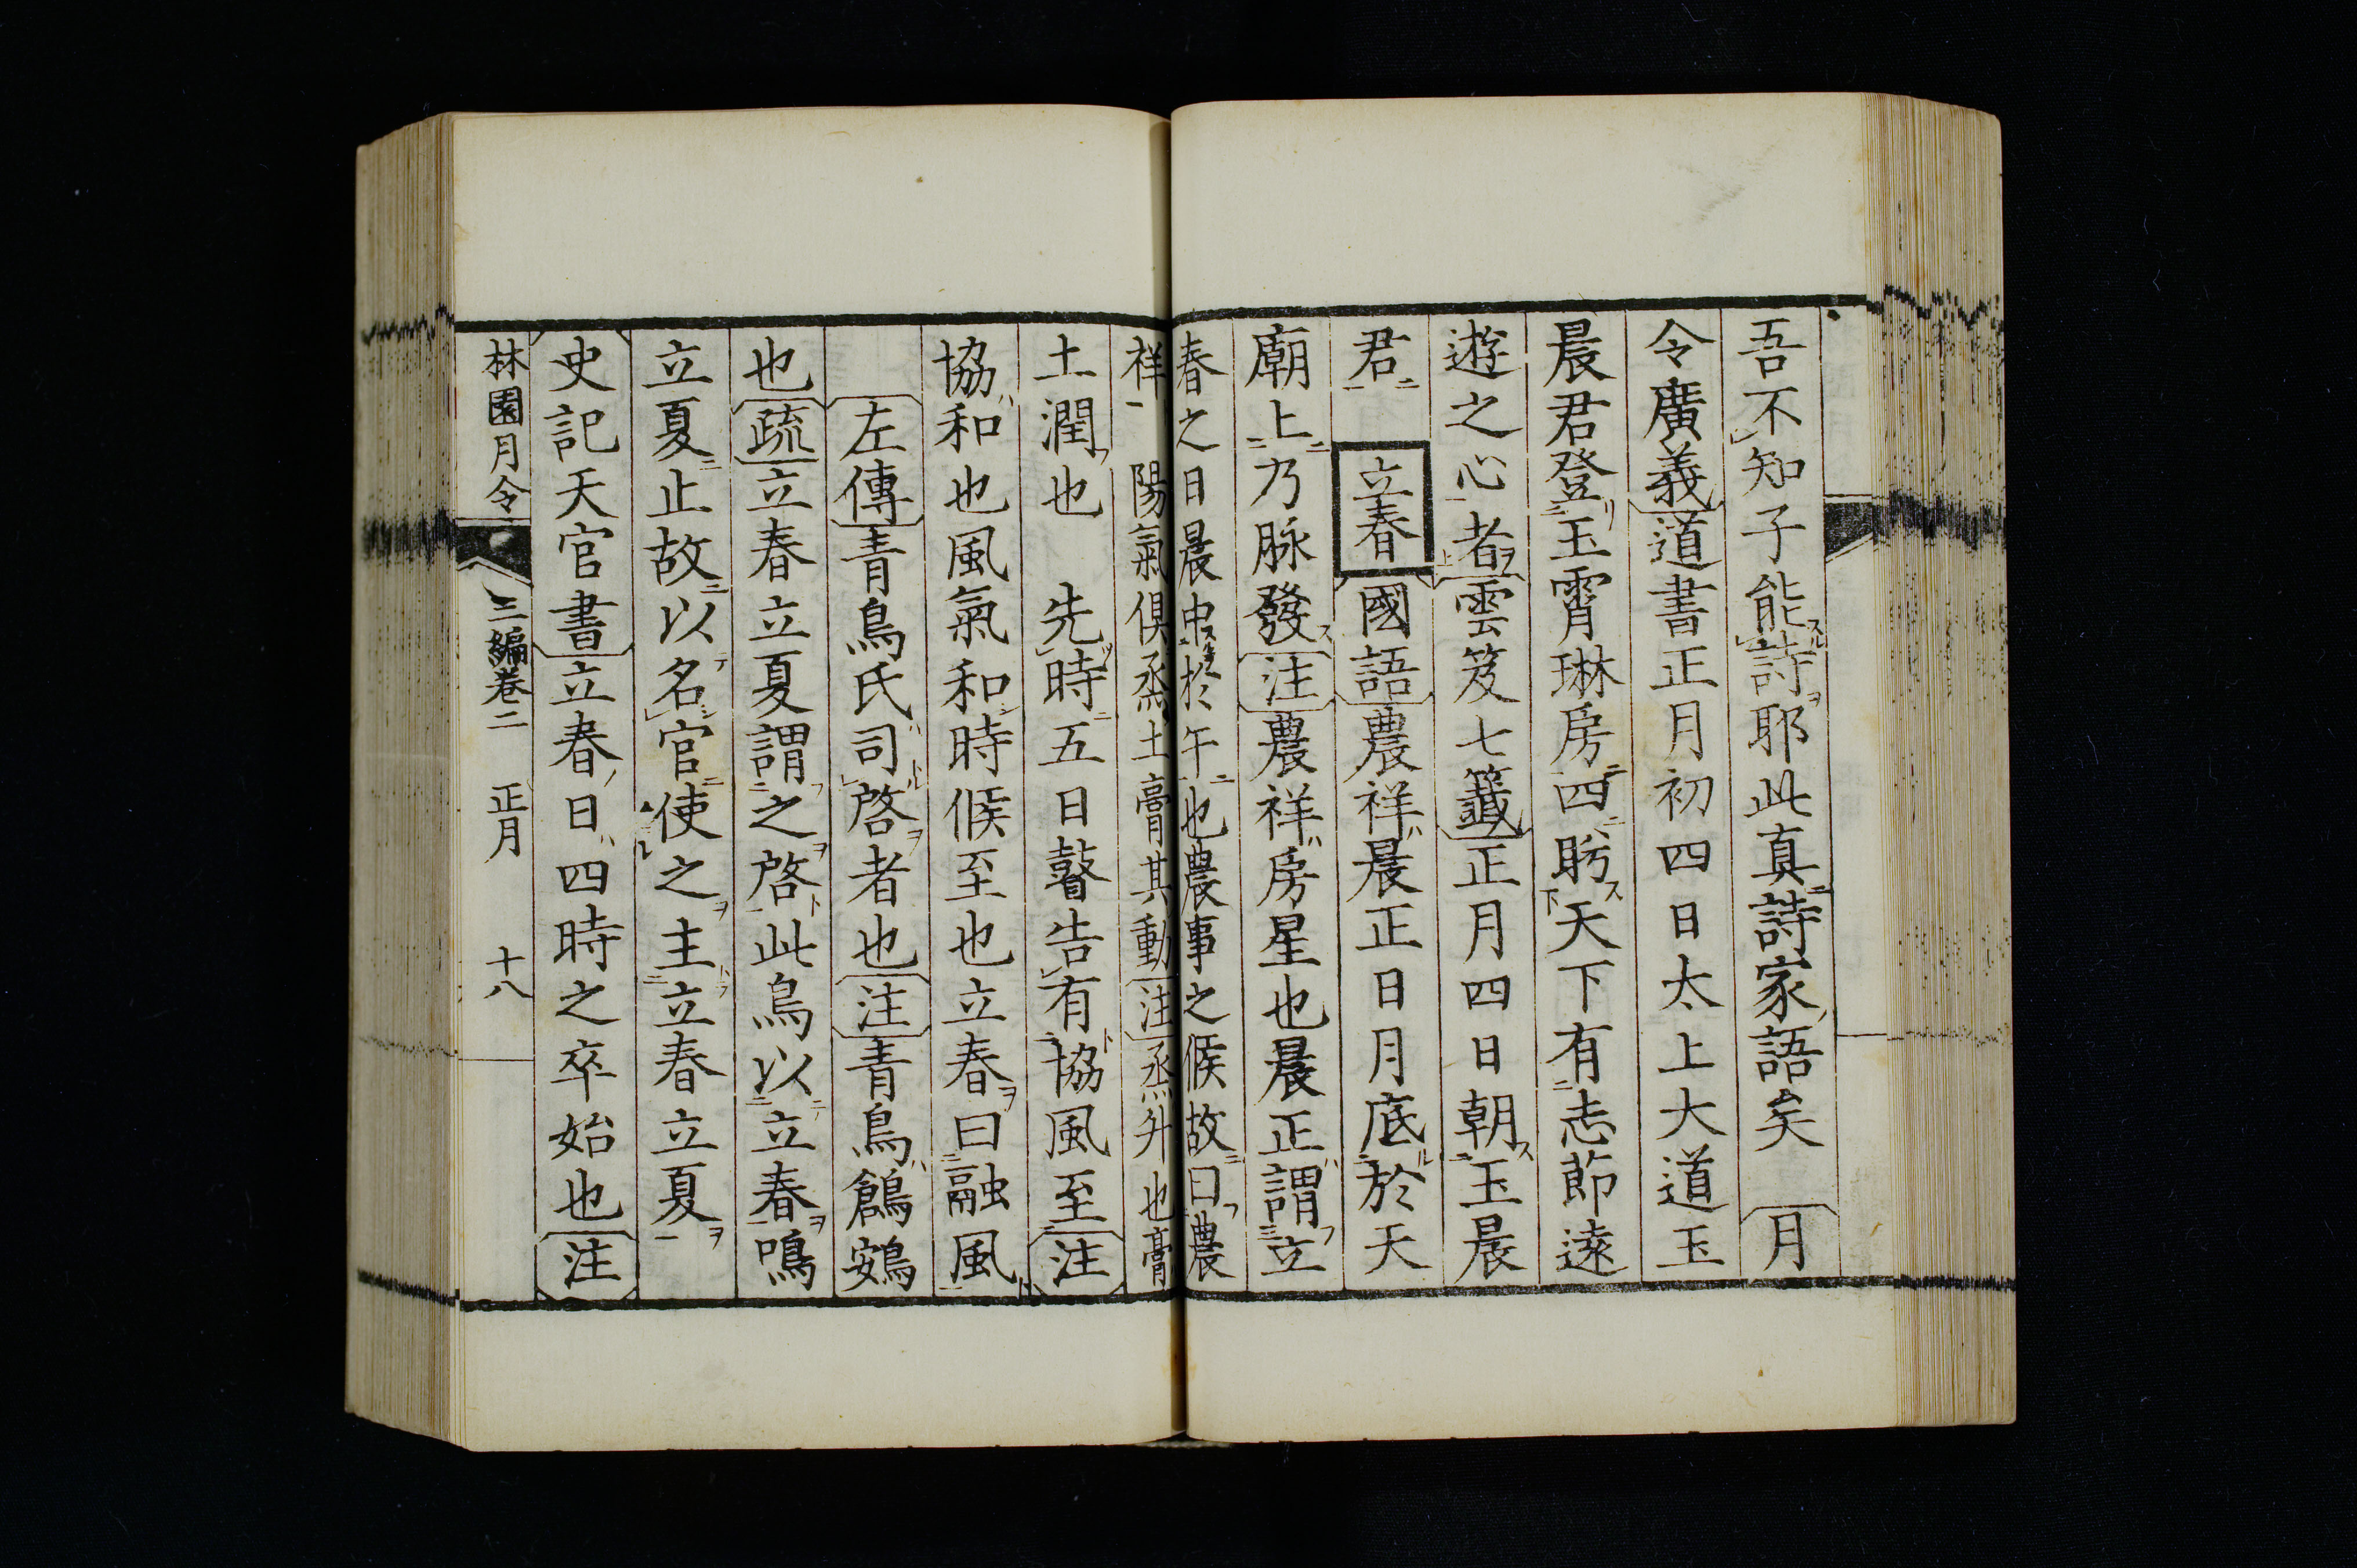 吾不知子能詩耶此真詩家語矣　月
令廣義道書正月初四日太上大道玉
晨君登玉霄琳房四眄天下有志節遠
遊之心者雲笈七籤正月四日朝玉晨
君　立春國語農祥晨正日月底於天
廟上乃脉發注農祥房星也晨正謂立
春之日晨中於午也農事之候故曰農
祥　陽氣俱烝土膏其動注烝升也膏
土潤也　先時五日瞽告有協風至注
協和也風氣和時候至也立春曰融風
左傳青鳥氏司啓者也注青鳥鶬鴳
也疏立春立夏謂之啓此鳥以立春鳴
立夏止故以名官使之主立春立夏
史記天官書立春日四時之卒始也注
林園月令　三編卷二　正月　十八